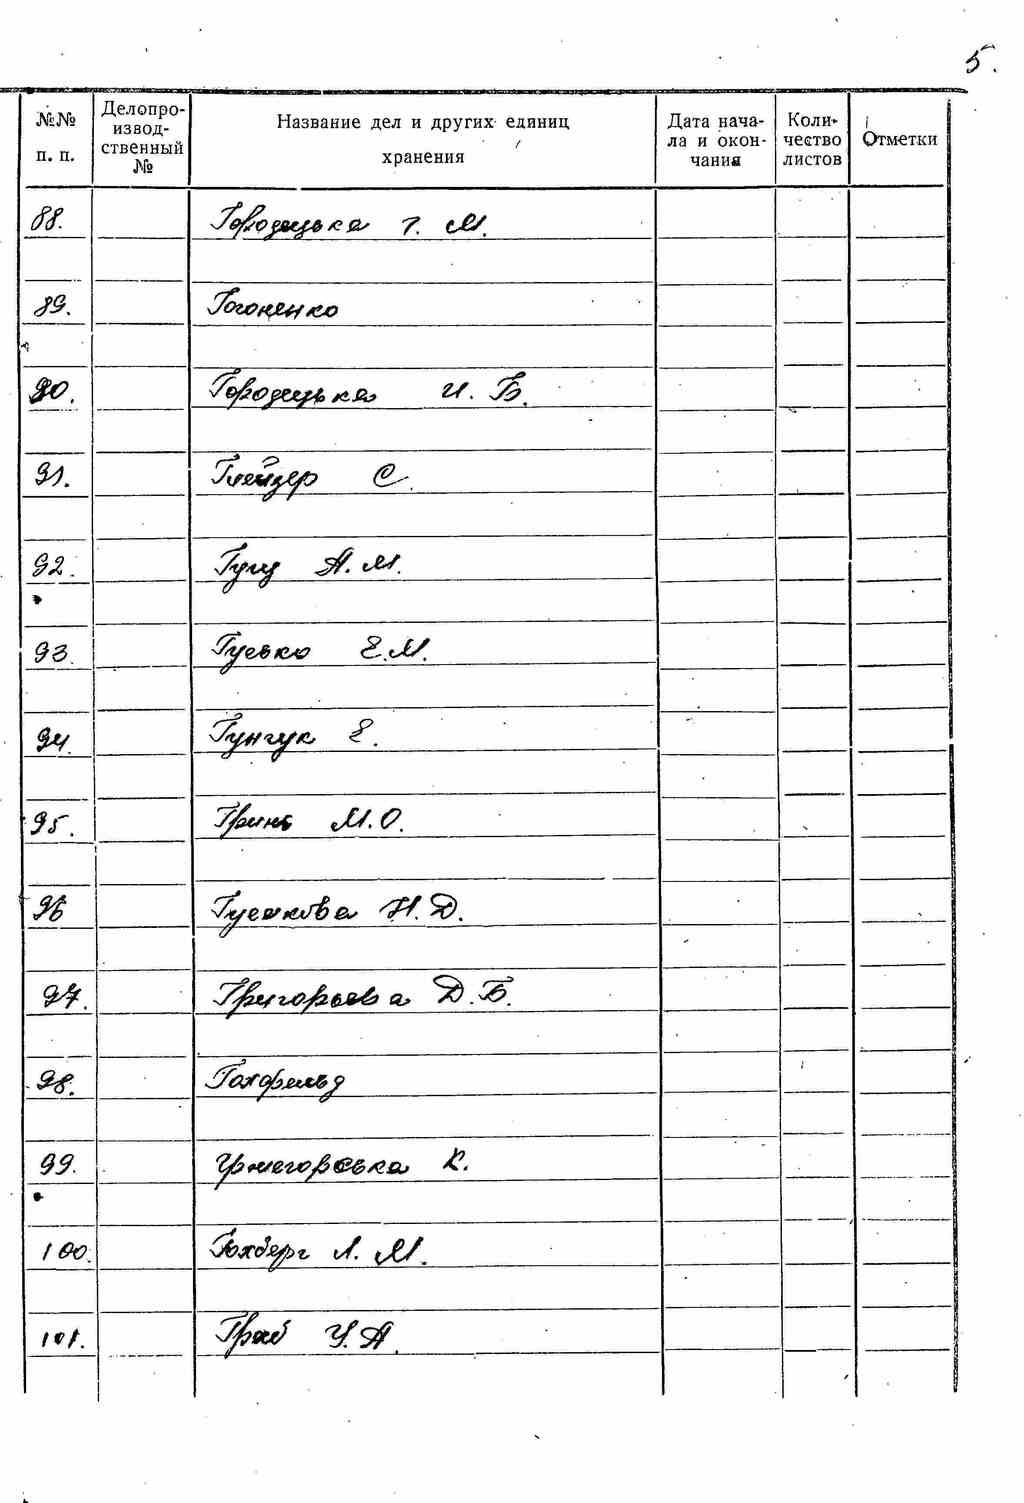 5.
№№ п. п.
Делопроизводственный №
Название дел и других единиц хранения
Дата начала и окончания
Количество листов
Отметки
88. Городецька Г. М.
89. Гогоненко
90. Городецька И. Б.
91. Глейзер С.
92. А. М.
93. Гусько Е.М.
94. Гунчук Е.
95. Гринь М.О.
96 Гусакова Н.Д.
97. Григорьева Д.Б.
98. Гохфельд
99. К.
100. Гохберг Л. М.
101. Граб У.А.